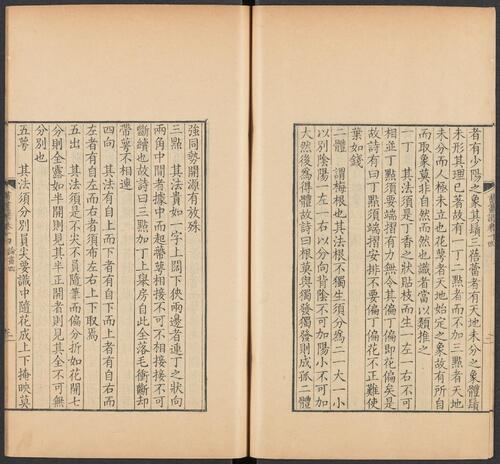 者有少陽之象其蹞三蓓蕾者有天地未分之象體蹞
未形其理已著故有一丁二點者而不加三點者天地
未分而人極未立也花萼者天地始定之象故有所自
而取象莫非自然而然也識者當以類推之
一丁　其法須是丁香之狀貼枝而生一左一右不可
相並丁點須要端揩有力無令其偏丁偏即花偏矣是
故詩有曰丁點須端揩安排不要偏丁偏花不正難使
葉如錢
二體　謂梅根也其法根不獨生須分爲二一大一小
以別陰陽一左一右以分向背陰不可加陽小不可加
大然後爲得體故詩曰根莫與獨發獨發則成孤二體
強同勢開源有放殊
三點　其法貴如一字上闊下狹兩邊者連丁之狀向
兩角中間者據中而起蒂萼相接不可不相接接不可
斷續也故詩曰三點加丁上舉房自此全落毛衝斷却
帶萼不相連
四向　其法有自上而下者有自下而上者有自右而
左者有自左而右者須布左右上下取焉
五出　其法須是不尖不員隨筆而偏分折如花開七
分則全露如半開則見其半正開者則見其全不可無
分別也
五萼　其法須分別員尖要識中隨花成上下掩映莫